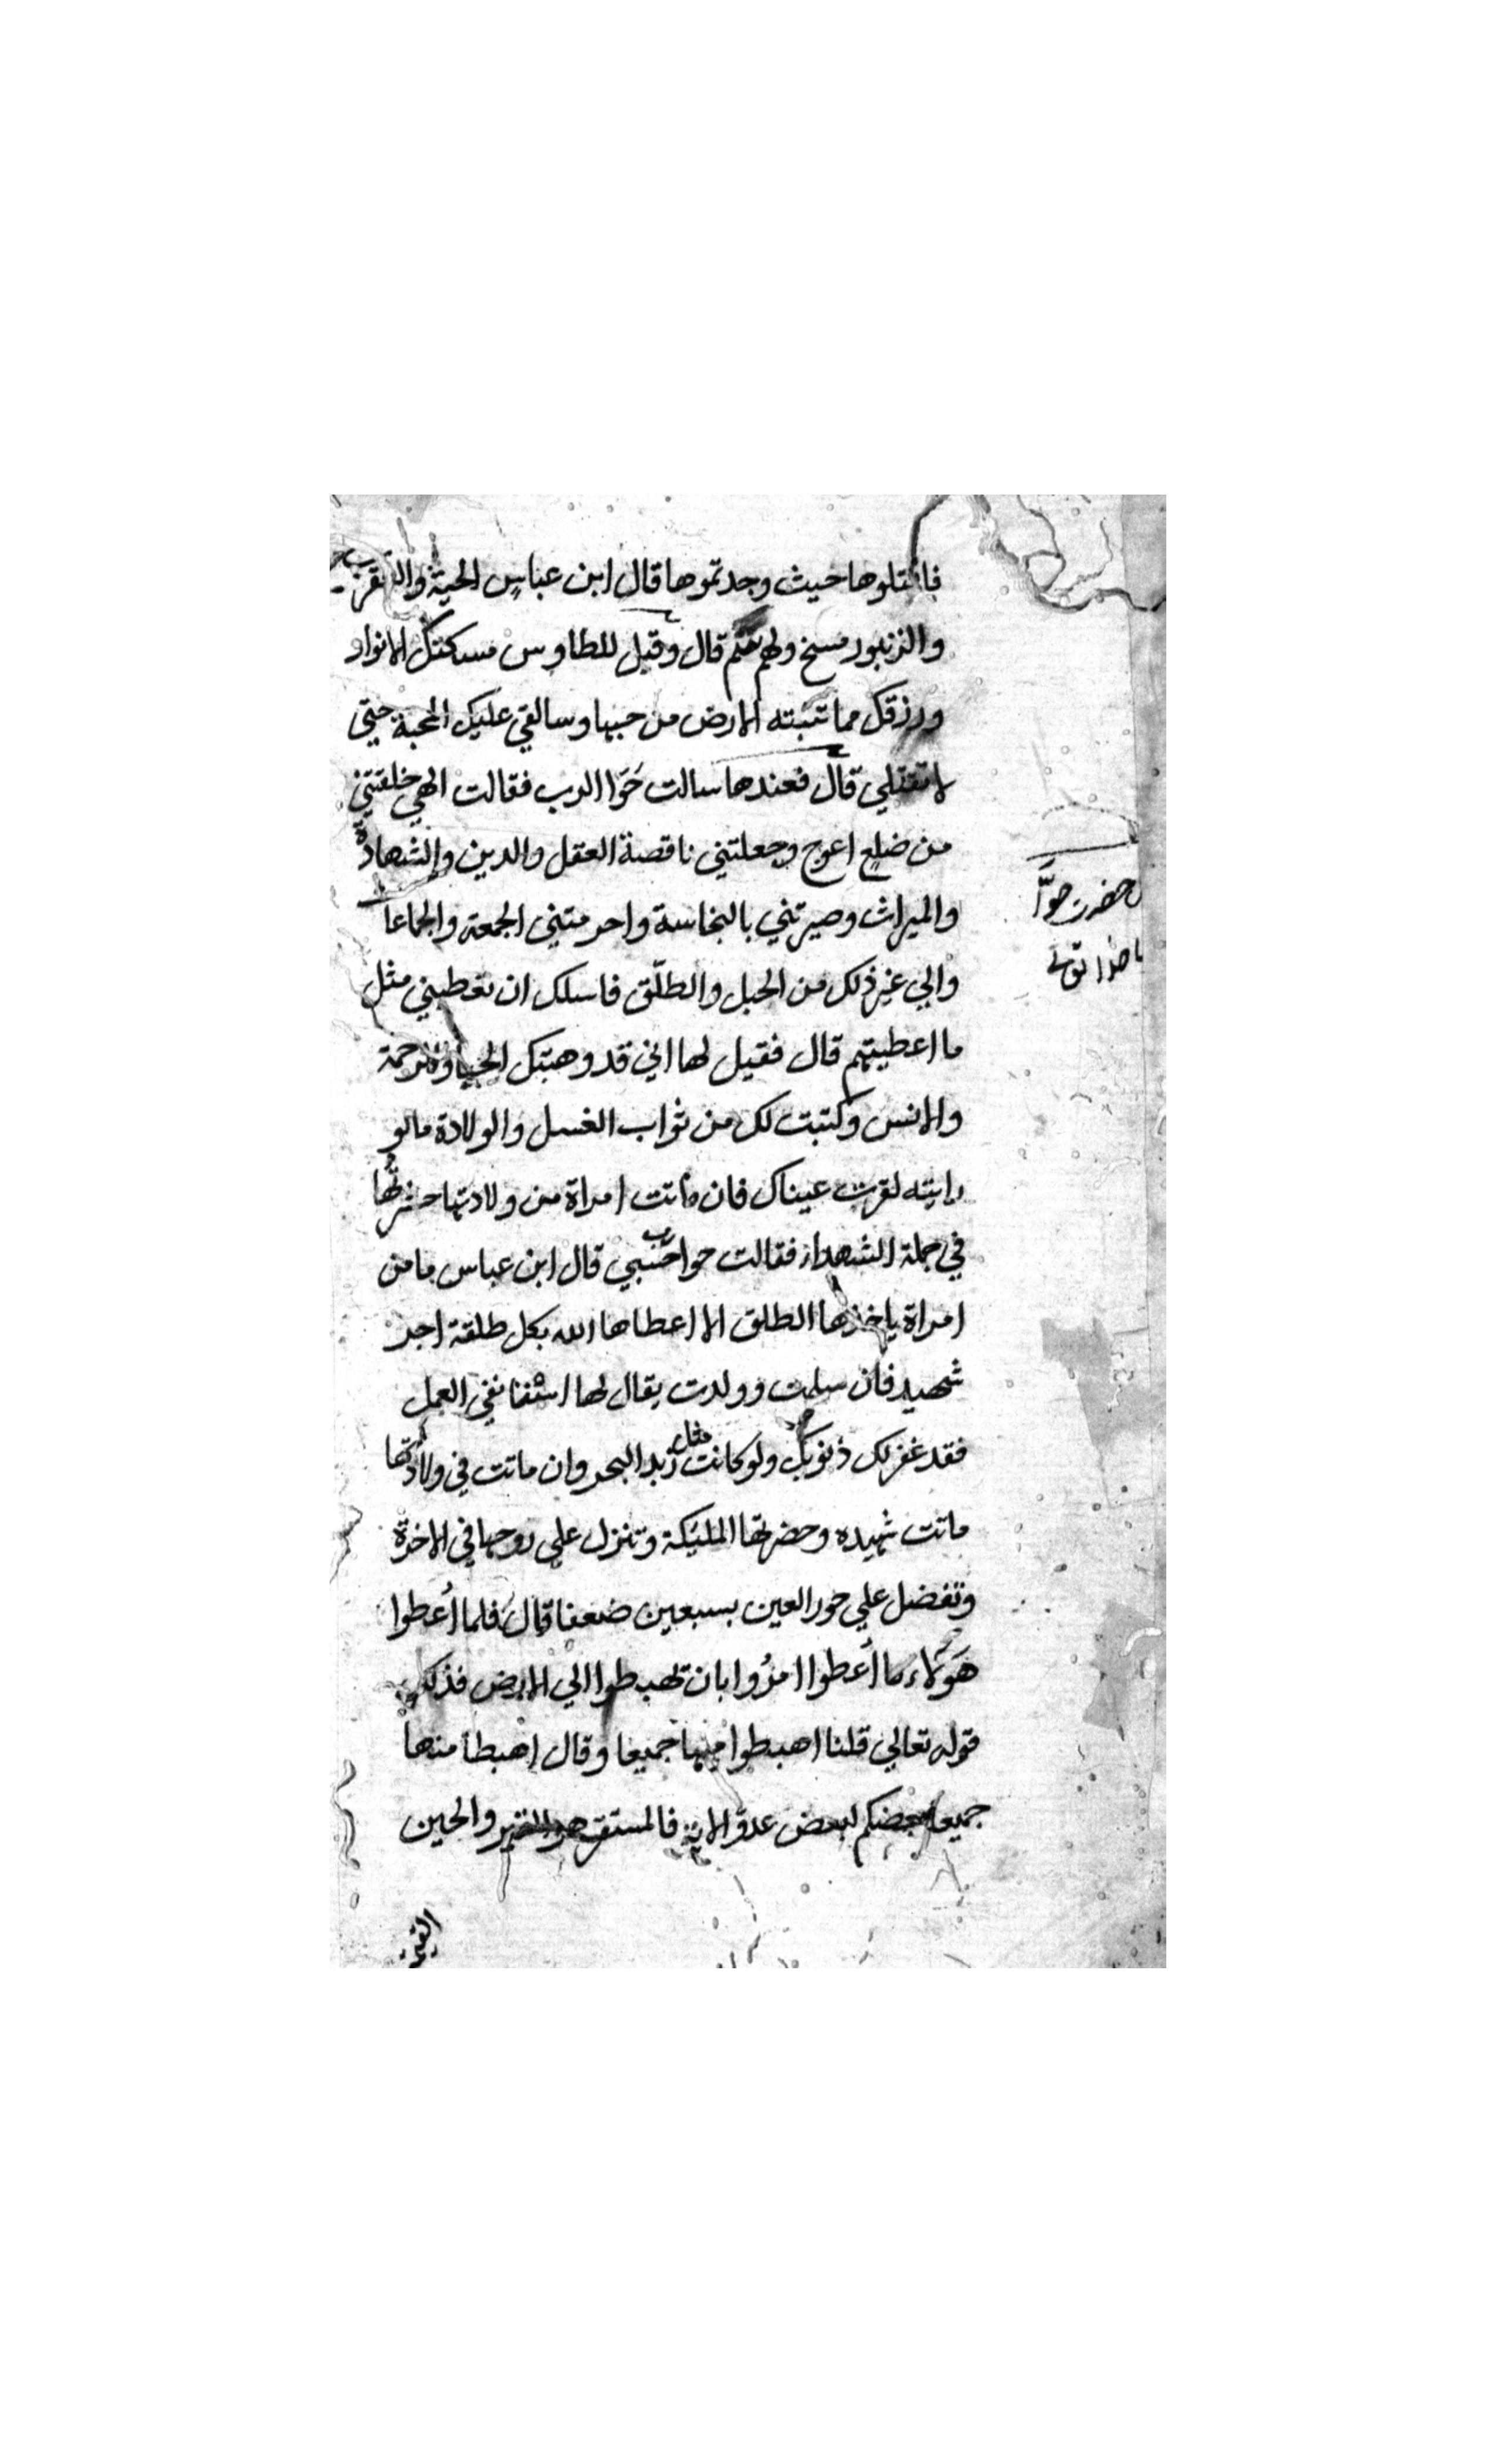 فاقتلوها حيث وجدتموها قال ابن عباس الحية والعقرب
والزنبور مسخ ولهم سم قال وقيل للطاوس مسكنك الانوار
ورزقك مما تنبته الارض من حبها وسالقي عليك المحبة حتي
لا تقتلي قال فعندها سالت حَوّا الرب فقالت الهي خلقتني
من ضلع اعوج وجعلتني ناقصة العقل والدين والشهادة
والميراث وصيرتني بالنجاسة واحرمتني الجمعة والجماعا
والي غير ذلك من الحبل والطلّق فاسلك ان تعطيني مثل
ما اعطيتهم قال فقيل لها اني قد وهبتك الحيا والرحمة
والانس وكتبت لك من ثواب الغسل والولادة ما لو
رايتيه لقرت عيناك فان ماتت امراة من ولادتها حشرتُها
في جملة الشهداء فقالت حوا حسبي قال ابن عباس ما من
امراة ياخذها الطلق الا اعطاها الله بكل طلقة اجر
شهيد فان سلمت وولدت يقال لها استانفي العمل
فقد غفر لك ذنوبك ولو كانت مثل زبد البحر وان ماتت في ولادتها
ماتت شهيده وحضرتها المليكة وتنزل علي روحها في الاخرة
وتفضل علي حور العين بسبعين ضعفا قال فلما اُعطوا
هَوُلاء ما اُعطوا امرُوا بان تهبطوا الي الارض فذلك
قوله تعالي قلنا اهبطوا منها جميعا وقال اهبطا منها
جميعا بعضكم لبعض عدوّ الاية فالمستقر هو القبر والحين
حضرت حوَّا